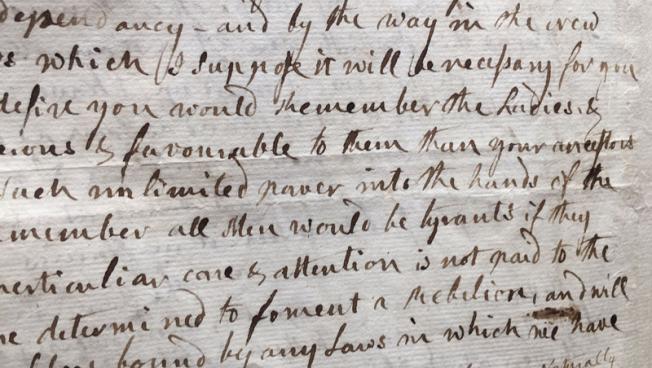 dependancy - and by the way in the new
which I suppose it will be necessary for you
desire you would Remember the Ladies, &
& favourable to them than your ancestors
such unlimited power into the hands of the
emember all Men would be tyrants if they
perticuliar care & attention is not paid to the
determined to foment a Rebelion, and will
bound by any Laws in which we have